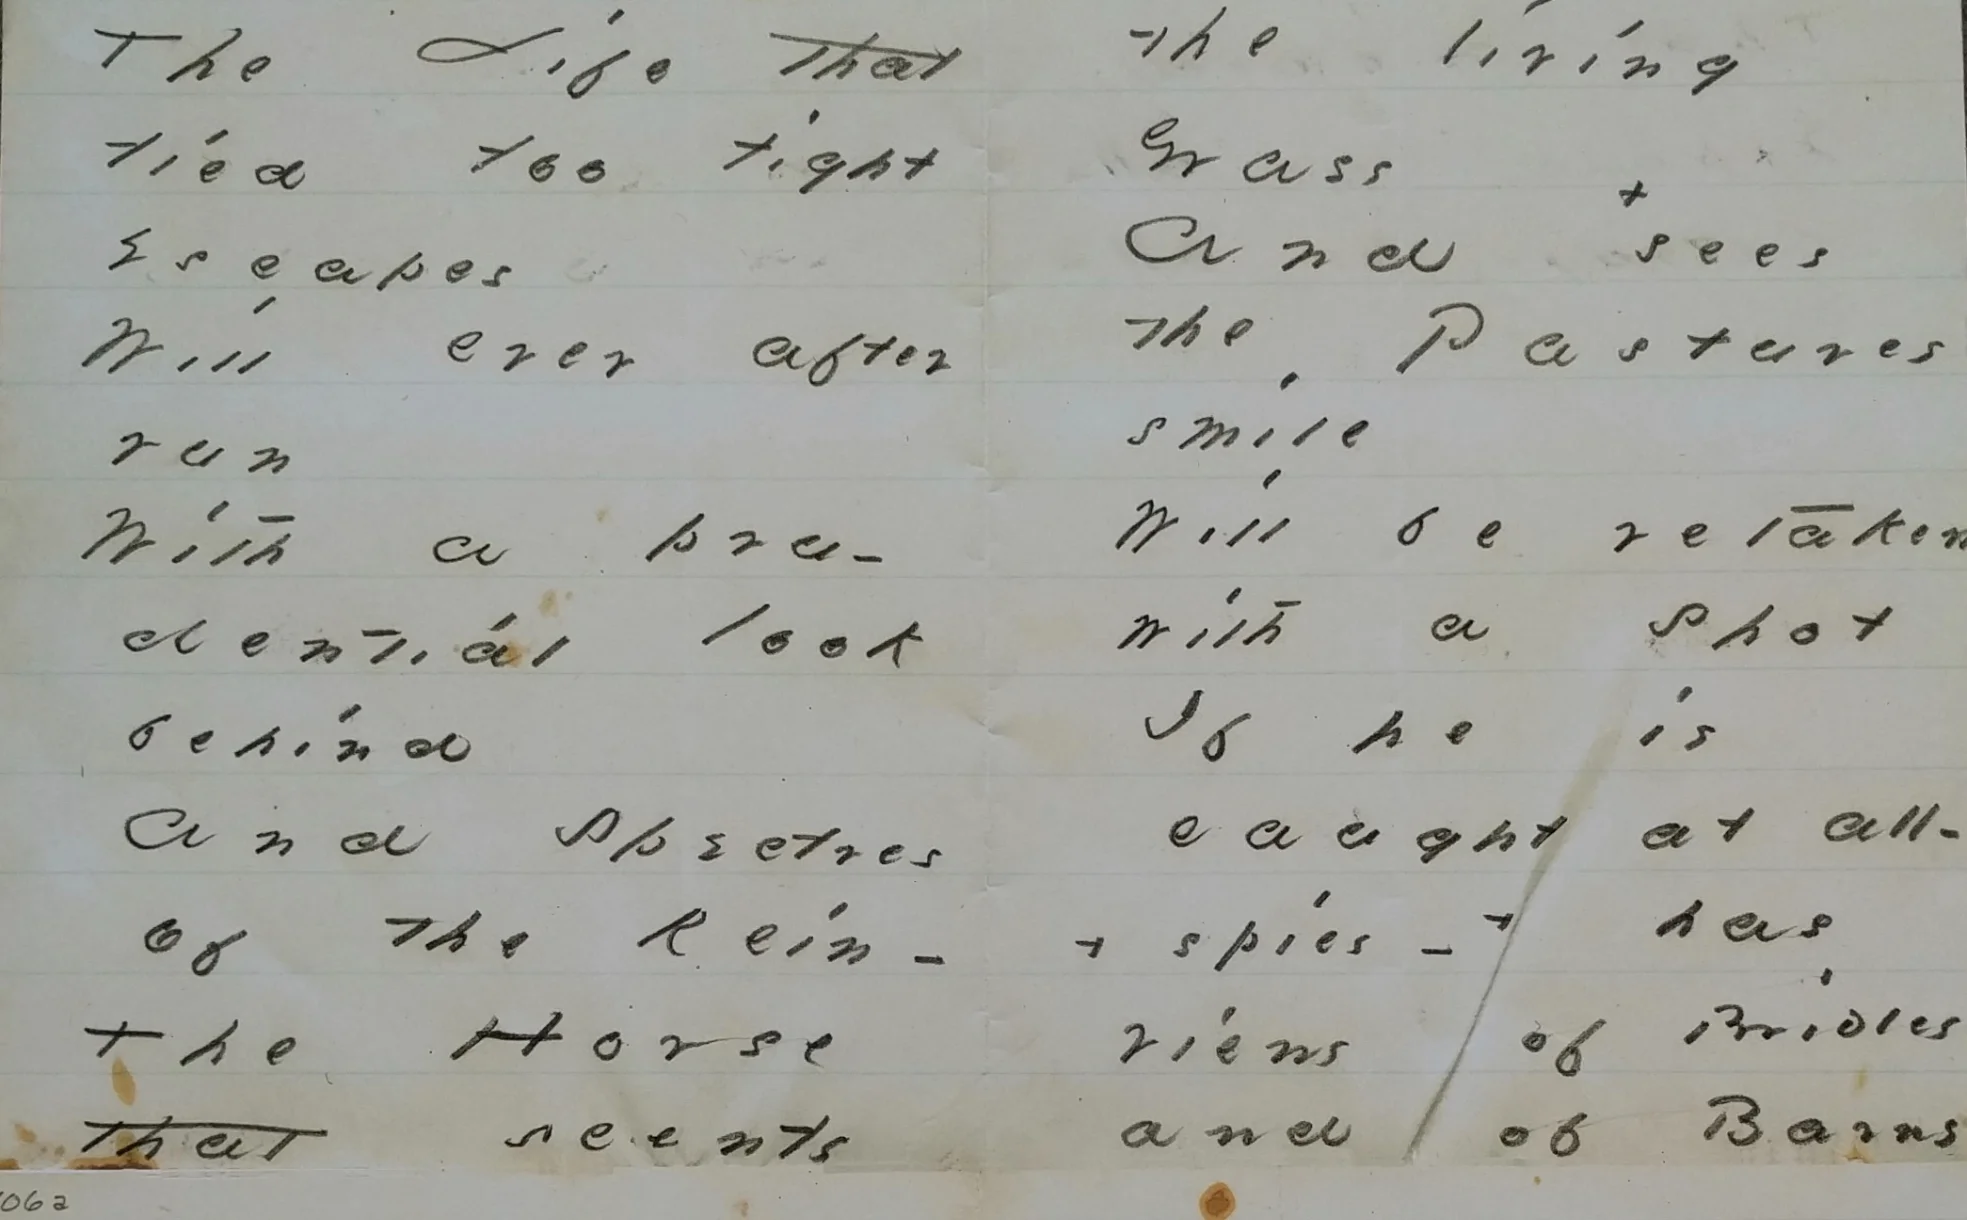 The Life that
tied too tight
Escapes
Will ever after
run
With a pru-
dential look
behind
And Spectres
of the Rein -
The Horse
that scents
the living
Grass
+
And sees
the Pastures
smile
Will be retaken
with a shot
If he is
caught at all -
+ spies - + has
views of Bridles
and of Barns
062